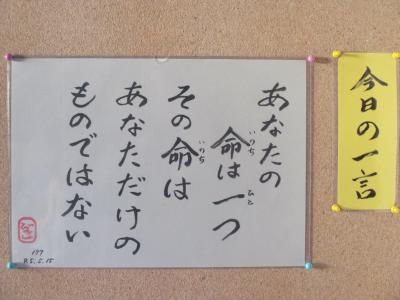 今日の一言
あなたの
命は一つ
いのち
ひと
その命は
いのち
あなただけの
ものではない
177
R5.5.15